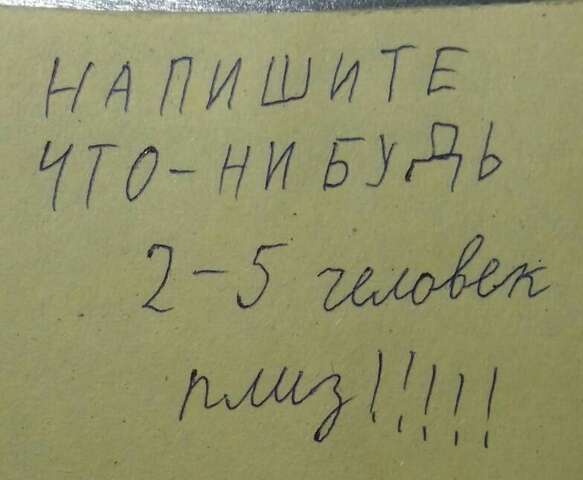 НАПИШИТЕ
ЧТО-НИБУДЬ
2-5 человек
плиз!!!!!